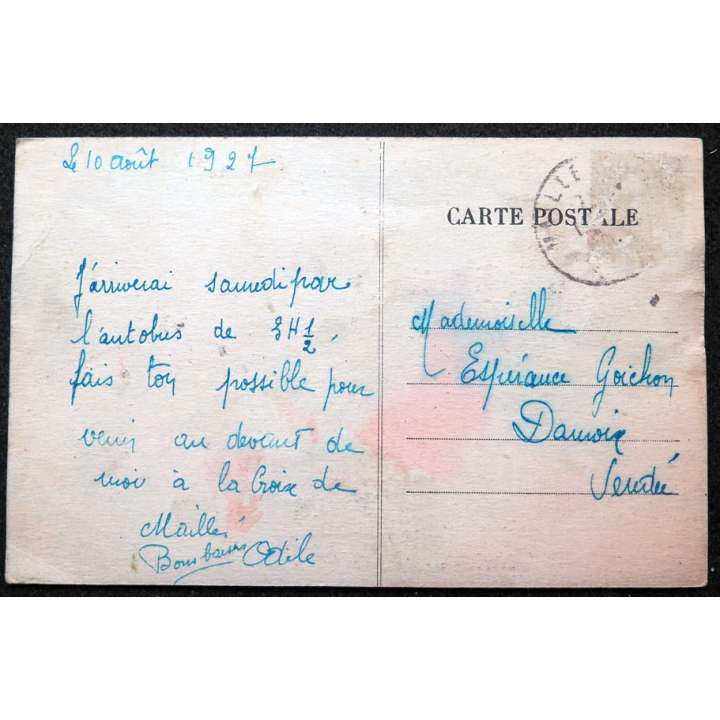 Le 10 août 1927
J'arriverai samedi par
l'autobus de 3H 1/2,
fais ton possible pour
venir au devant de
moi à la Croix de
Maillé,
Bons baisers Odile
CARTE POSTALE
MAILLE
Mademoiselle
Espérance Goichon
Damvix
Vendée